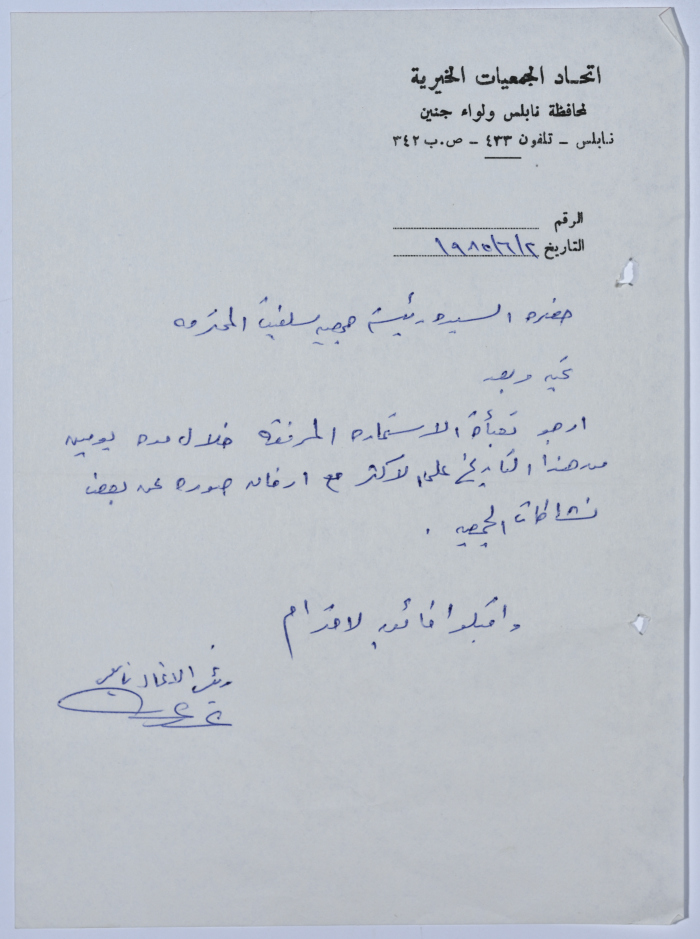 اتحاد الجمعيات الخيرية
لمحافظة نابلس ولواء جنين
نابلس - تلفون ٤٣٣ - ص.ب ٣٤٢
الرقم
التاريخ ١٩٨٥/٦/٢
حضرة السيدة رئيسة جمعية سلفيت المحترمة
تحية وبعد
ارجو تعبأة الاستمارة المرفقة خلال مدة يومين
من هذا التاريخ على الاكثر مع ارفاق صورة عن بعض
نشاطات الجمعية .
واقبلوا فائق الاحترام
رئيس الاتحاد نابلس